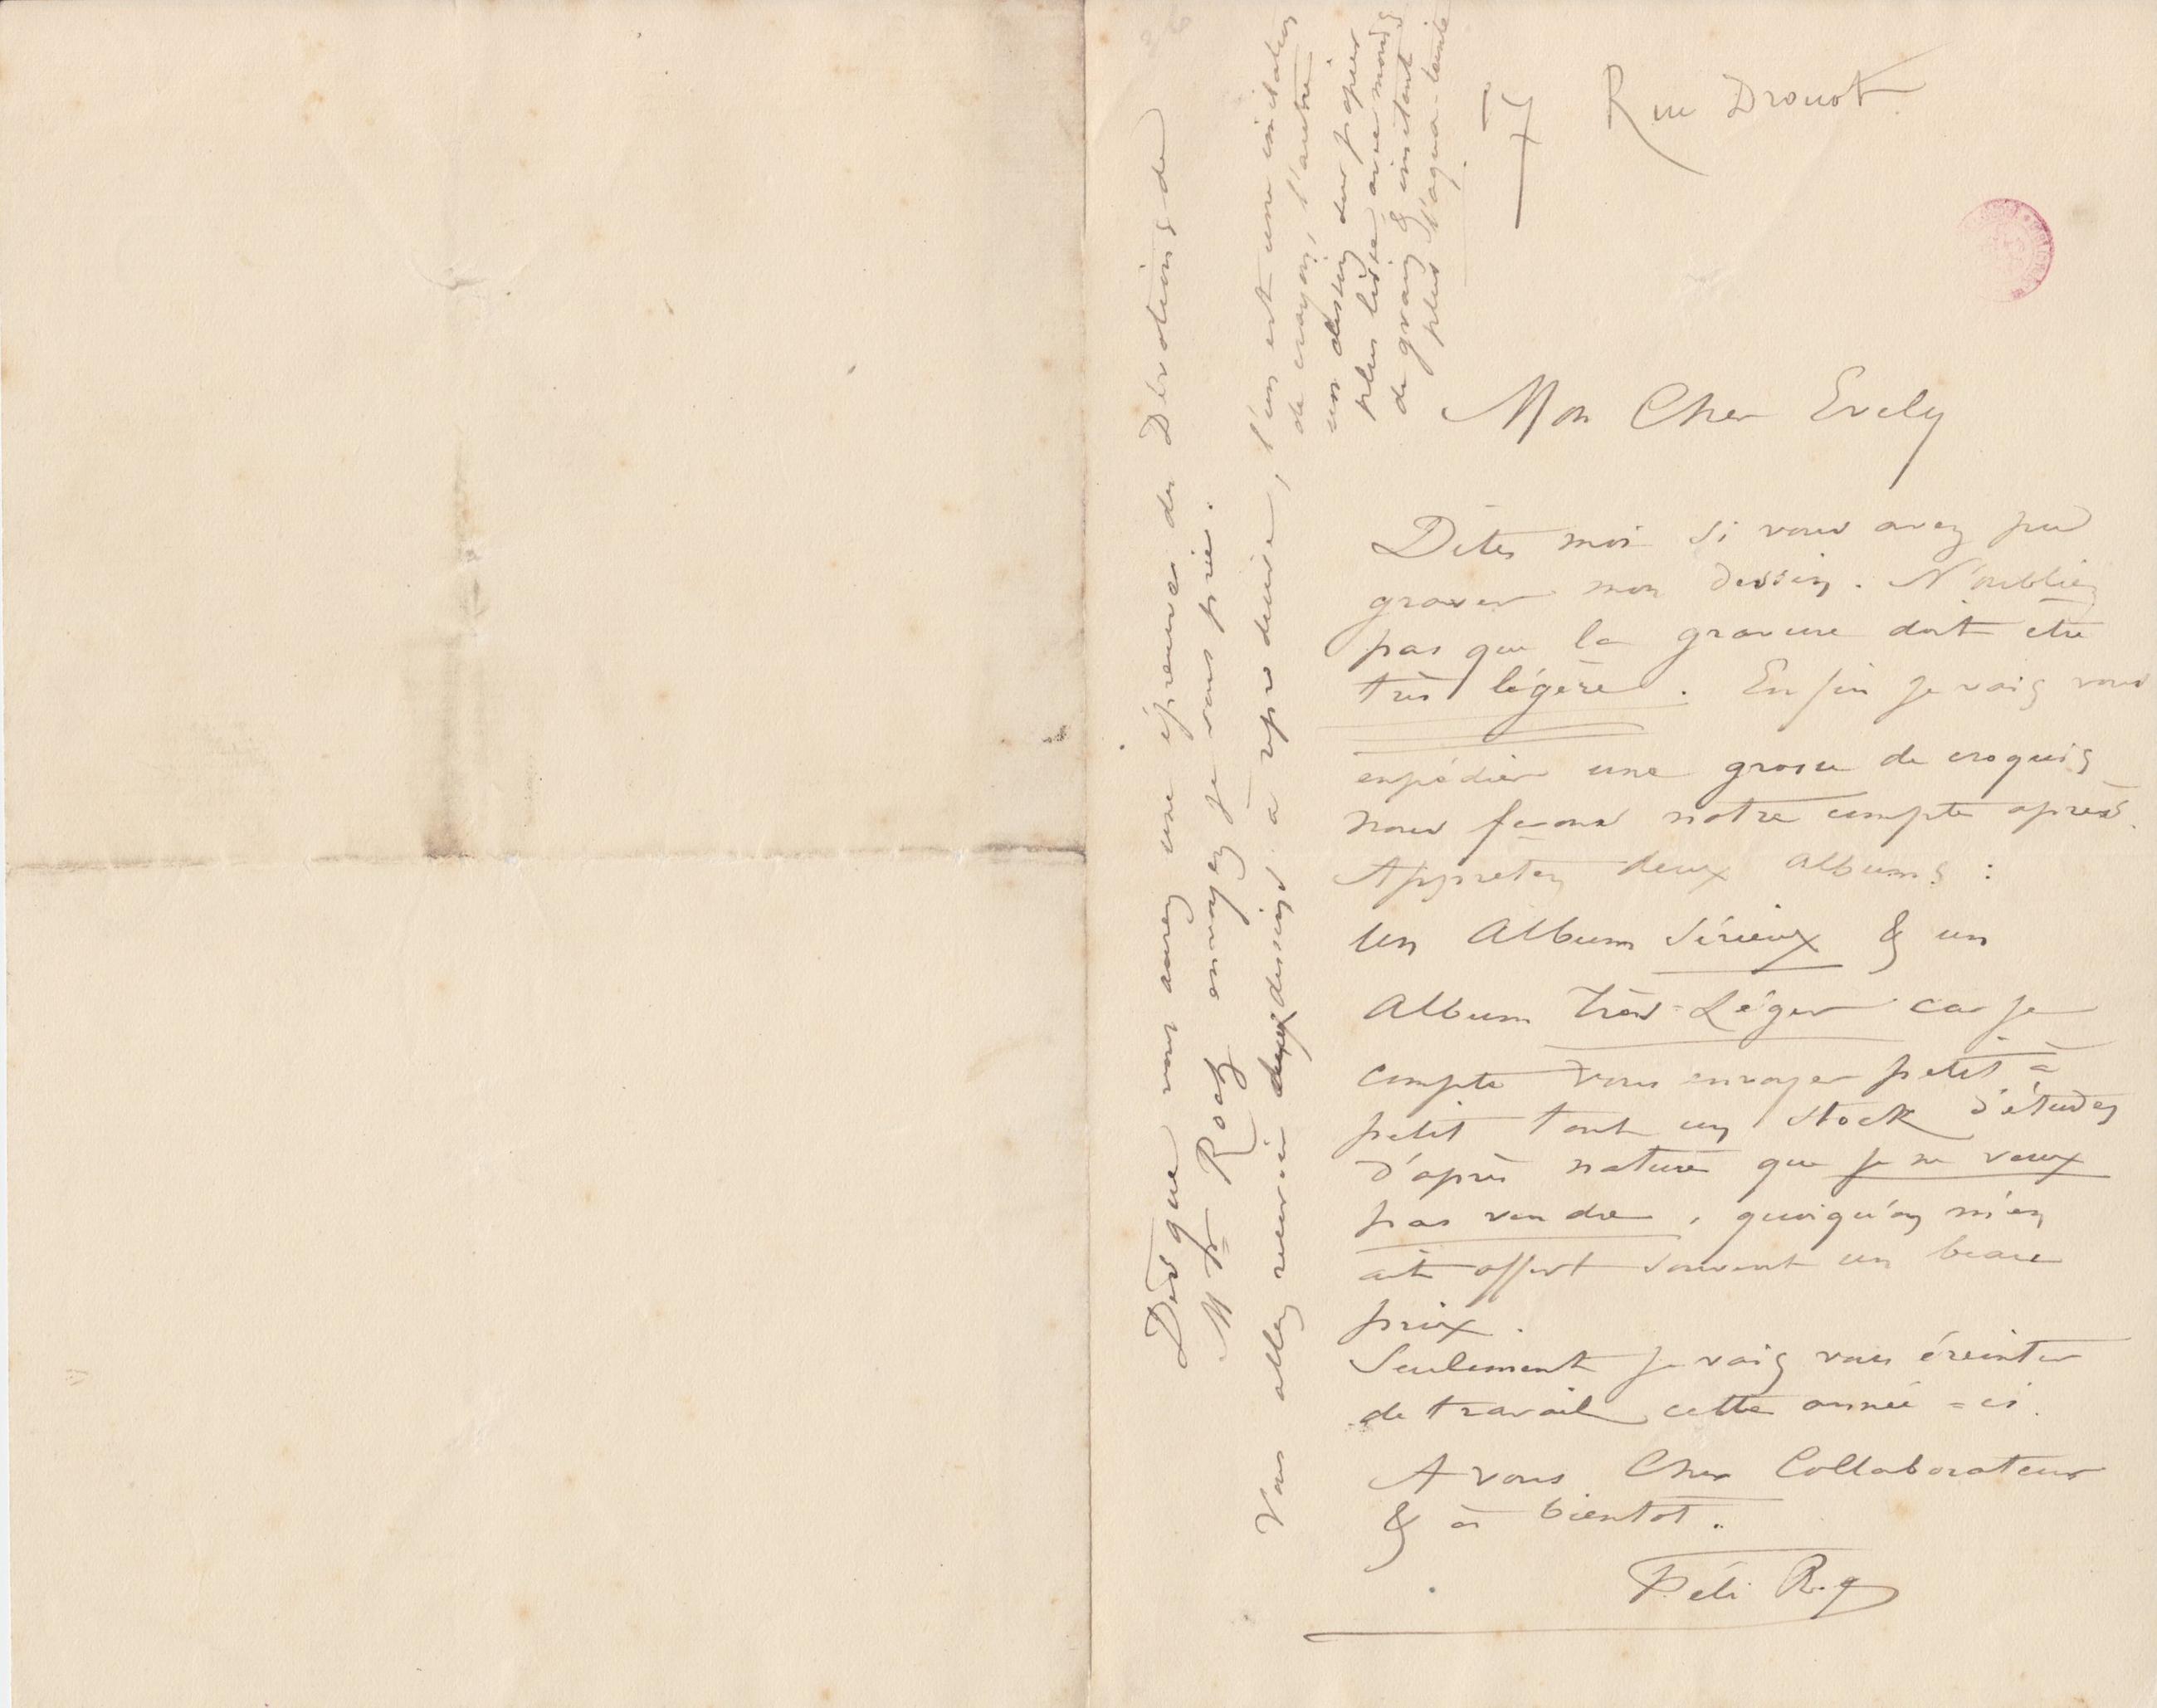 17 Rue Drouot.
Mon Cher Evely
Dites moi si vous avez pu
graver mon dessin. N'oubliez
pas que la gravure doit etre
très légère. Enfin je vais vous
expédier une grosse de croquis
nous ferons notre compte après.
Appretez deux albums :
Un Album Sérieux & un
Album Très-Léger car je
compte vous envoyer petit à
petit tout un stock d'études
d'après nature que je ne veux
pas vendre, quoiqu'on m'en
ait offert souvent un beau
prix.
Seulement je vais vous éreinter
de travail cette année-ci.
A vous Cher Collaborateur
& à bientot.
Féli R.
Dès que vous aurez une épreuve des Dévotions de
Mr Roch envoyez je vous prie.
Vous allez recevoir deux dessins à reproduire, l'un est une imitation
de crayon, l'autre
un dessin sur papier
plus lisse avec moins
de grain & imitant
plus l'aqua-tinte.